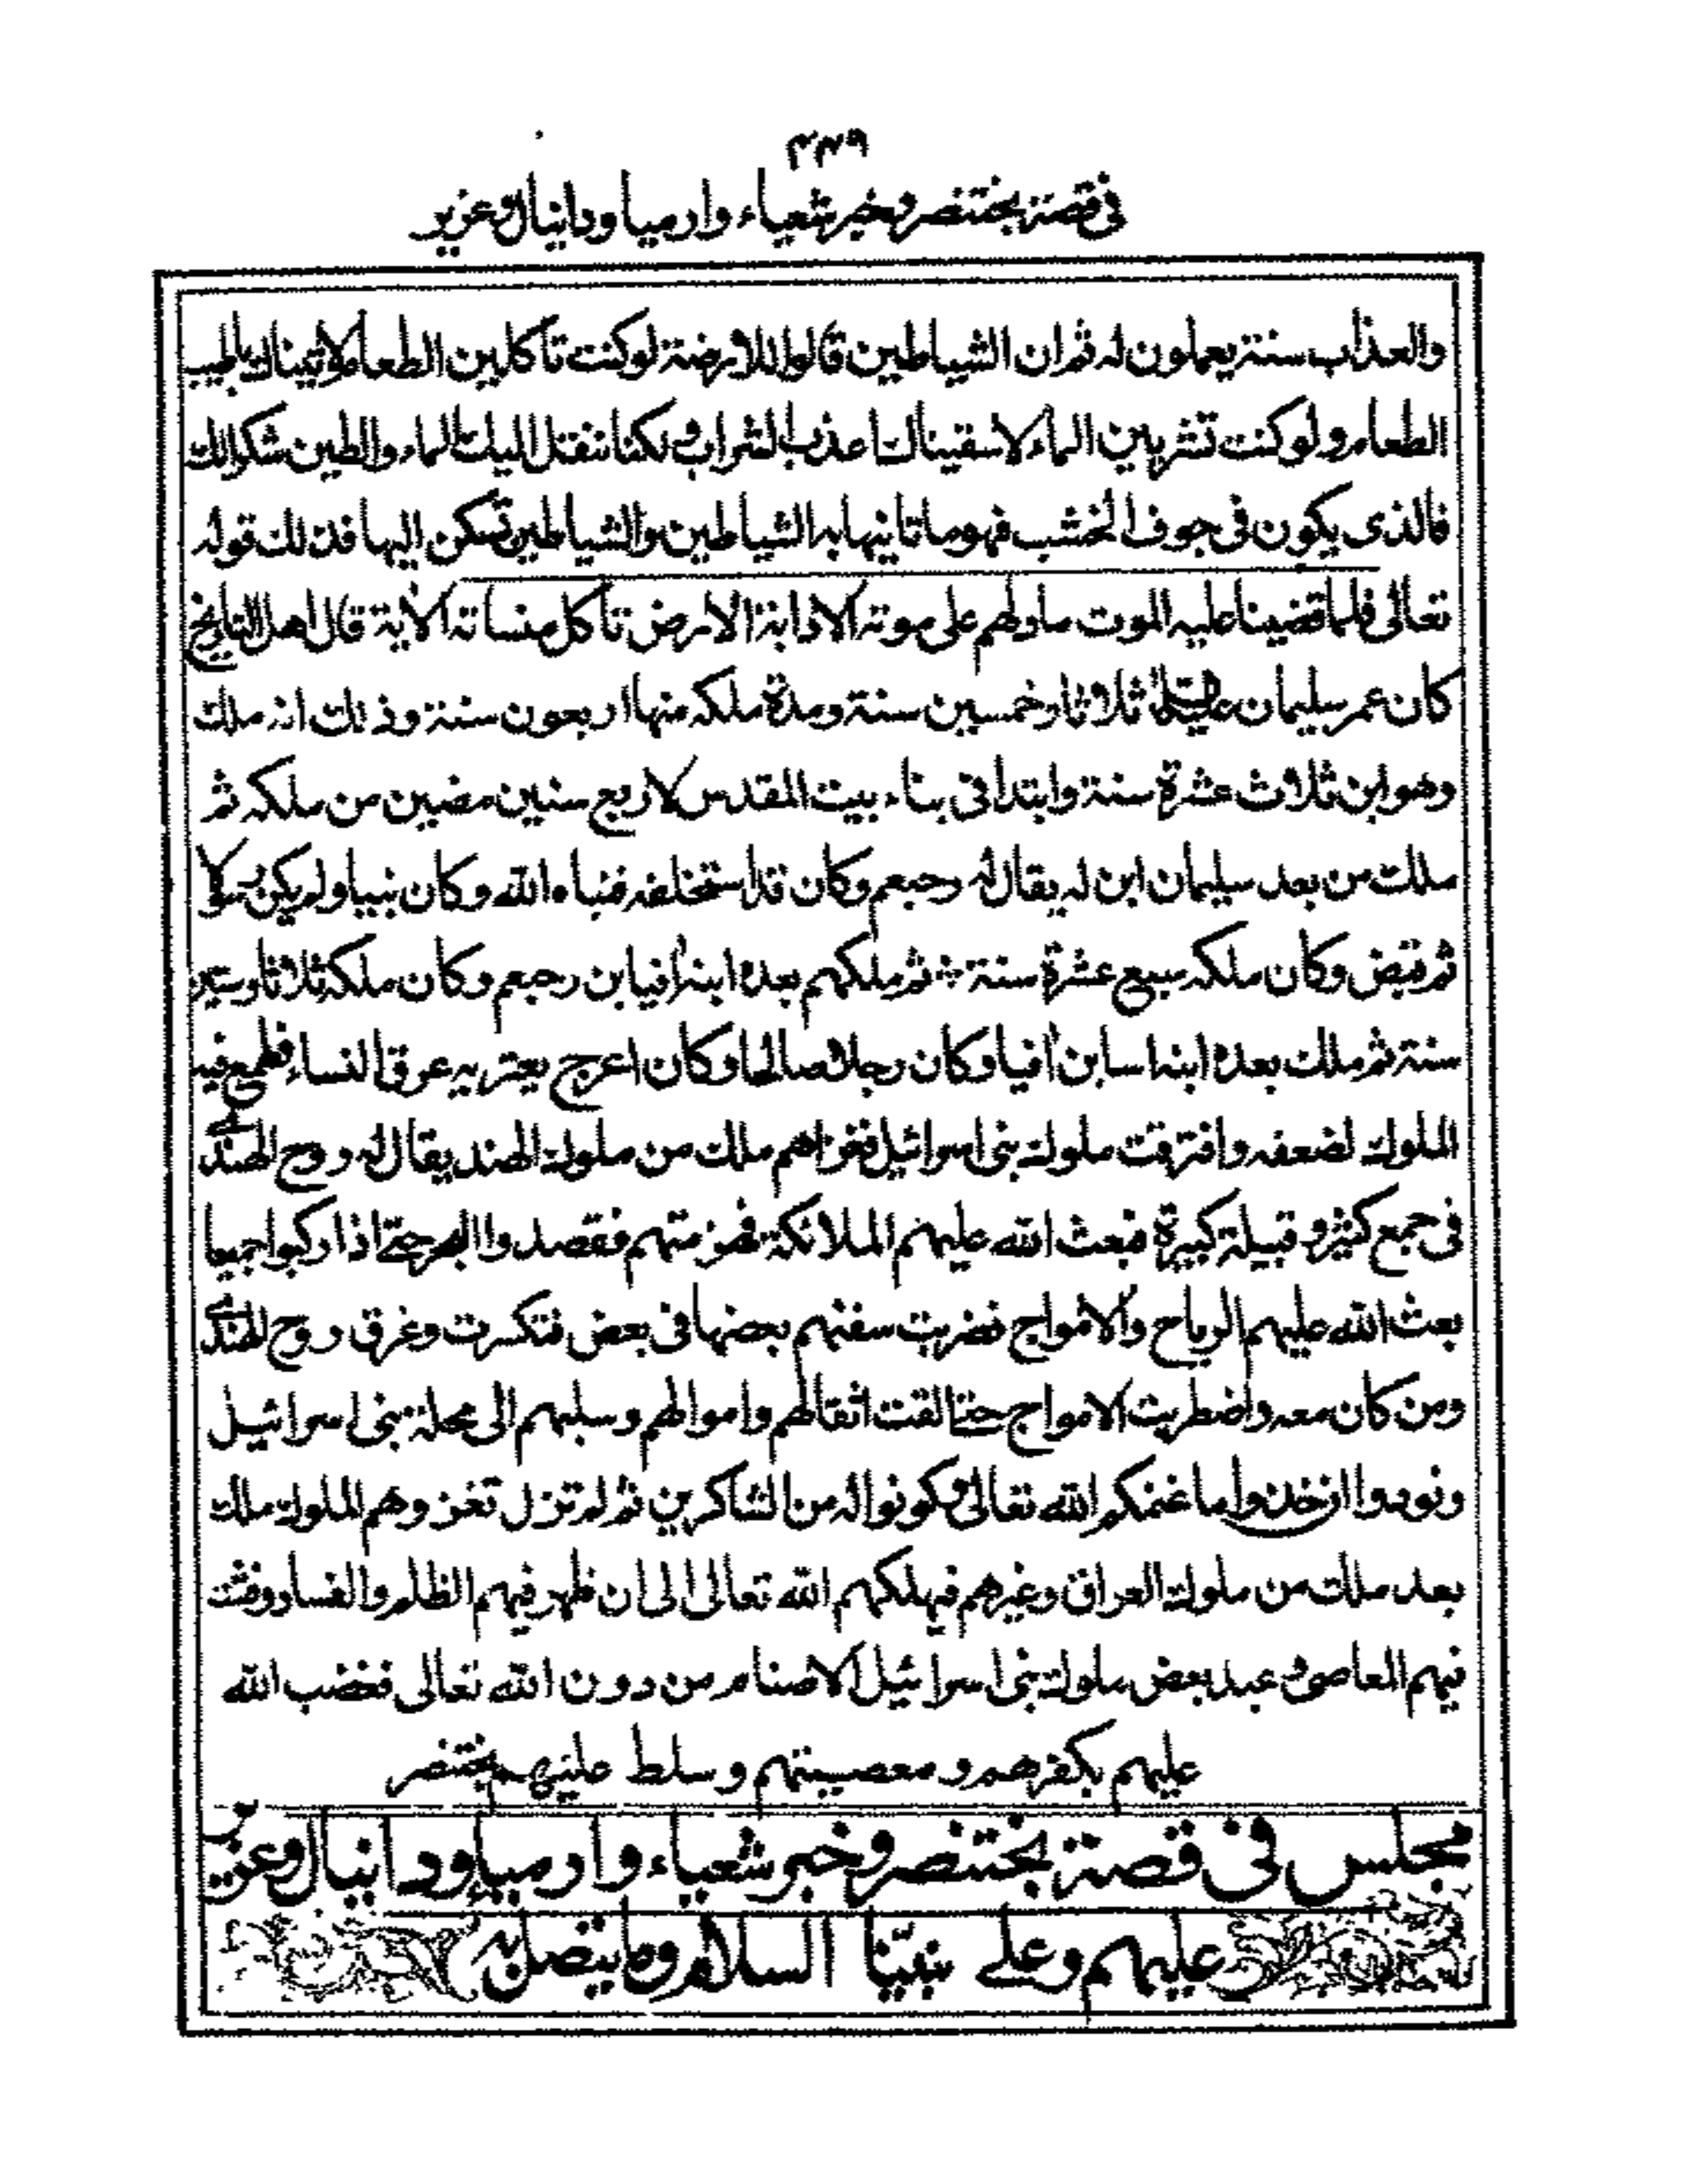 ٣٣٩
في قصة بختنصر وخبر شعياء وارميا ودانيال وعزير
والعذاب سنة يعملون له ثم ان الشياطين قالوا للارضة لو كنت تأكلين الطعام لاتيناك باطيب
الطعام ولو كنت تشربين الماء لاسقيناك اعذب الشراب ولكنا ننقل اليك الماء والطين شكرا لك
فالذى يكون فى جوف الخشب فهو ما تاتيها به الشياطين والشياطين تسكن اليها فذلك قوله
تعالى فلما قضينا عليه الموت ما دلهم على موته الا دابة الارض تأكل منساته الآية قال اهل التاريخ
كان عمر سليمان عليه السلام ثلاثا وخمسين سنة ومدة ملكه منها اربعون سنة وذلك انه ملك
وهو ابن ثلاث عشرة سنة وابتدا فى بناء بيت المقدس لاربع سنين مضين من ملكه ثم
ملك من بعد سليمان ابن له يقال له رحبعم وكان قد استخلفه فنباه الله وكان نبيا ولم يكن رسولا
ثم قبض وكان ملكه سبع عشرة سنة ثم ملكهم بعده ابنه افيا بن رحبعم وكان ملكه ثلاثا وستين
سنة ثم ملك بعده ابنه اسا بن افيا وكان رجلا صالحا وكان اعرج يعتريه عرق النساء فطمع فيه
الملوك لضعفه وافترقت ملوك بنى اسرائيل فغزاهم ملك من ملوك الهند يقال له روح الهندى
فى جمع كثير وقبيلة كبيرة فبعث الله عليهم الملائكة فهزمتهم فقصدوا البحر حتى اذا ركبوا جميعا
بعث الله عليهم الرياح والامواج فضربت سفنهم بعضها فى بعض فتكسرت وغرق روح الهندى
ومن كان معه واضطربت الامواج حتى القت اثقالهم واموالهم وسلبهم الى محلة بنى اسرائيل
ونودوا ان خذوا ما غنمكم الله تعالى وكونوا له من الشاكرين ثم لم تزل تغزوهم الملوك ملك
بعد ملك من ملوك العراق وغيرهم فيهلكهم الله تعالى الى ان ظهر فيهم الظلم والفساد وفشت
فيهم المعاصى وعبد بعض ملوك بنى اسرائيل الاصنام من دون الله تعالى فغضب الله
عليهم بكفرهم ومعصيتهم وسلط عليهم بختنصر
مجلس فى قصة بختنصر وخبر شعياء وارمياء ودانيال وعزير
عليهم وعلى نبينا السلام وما يتصل به